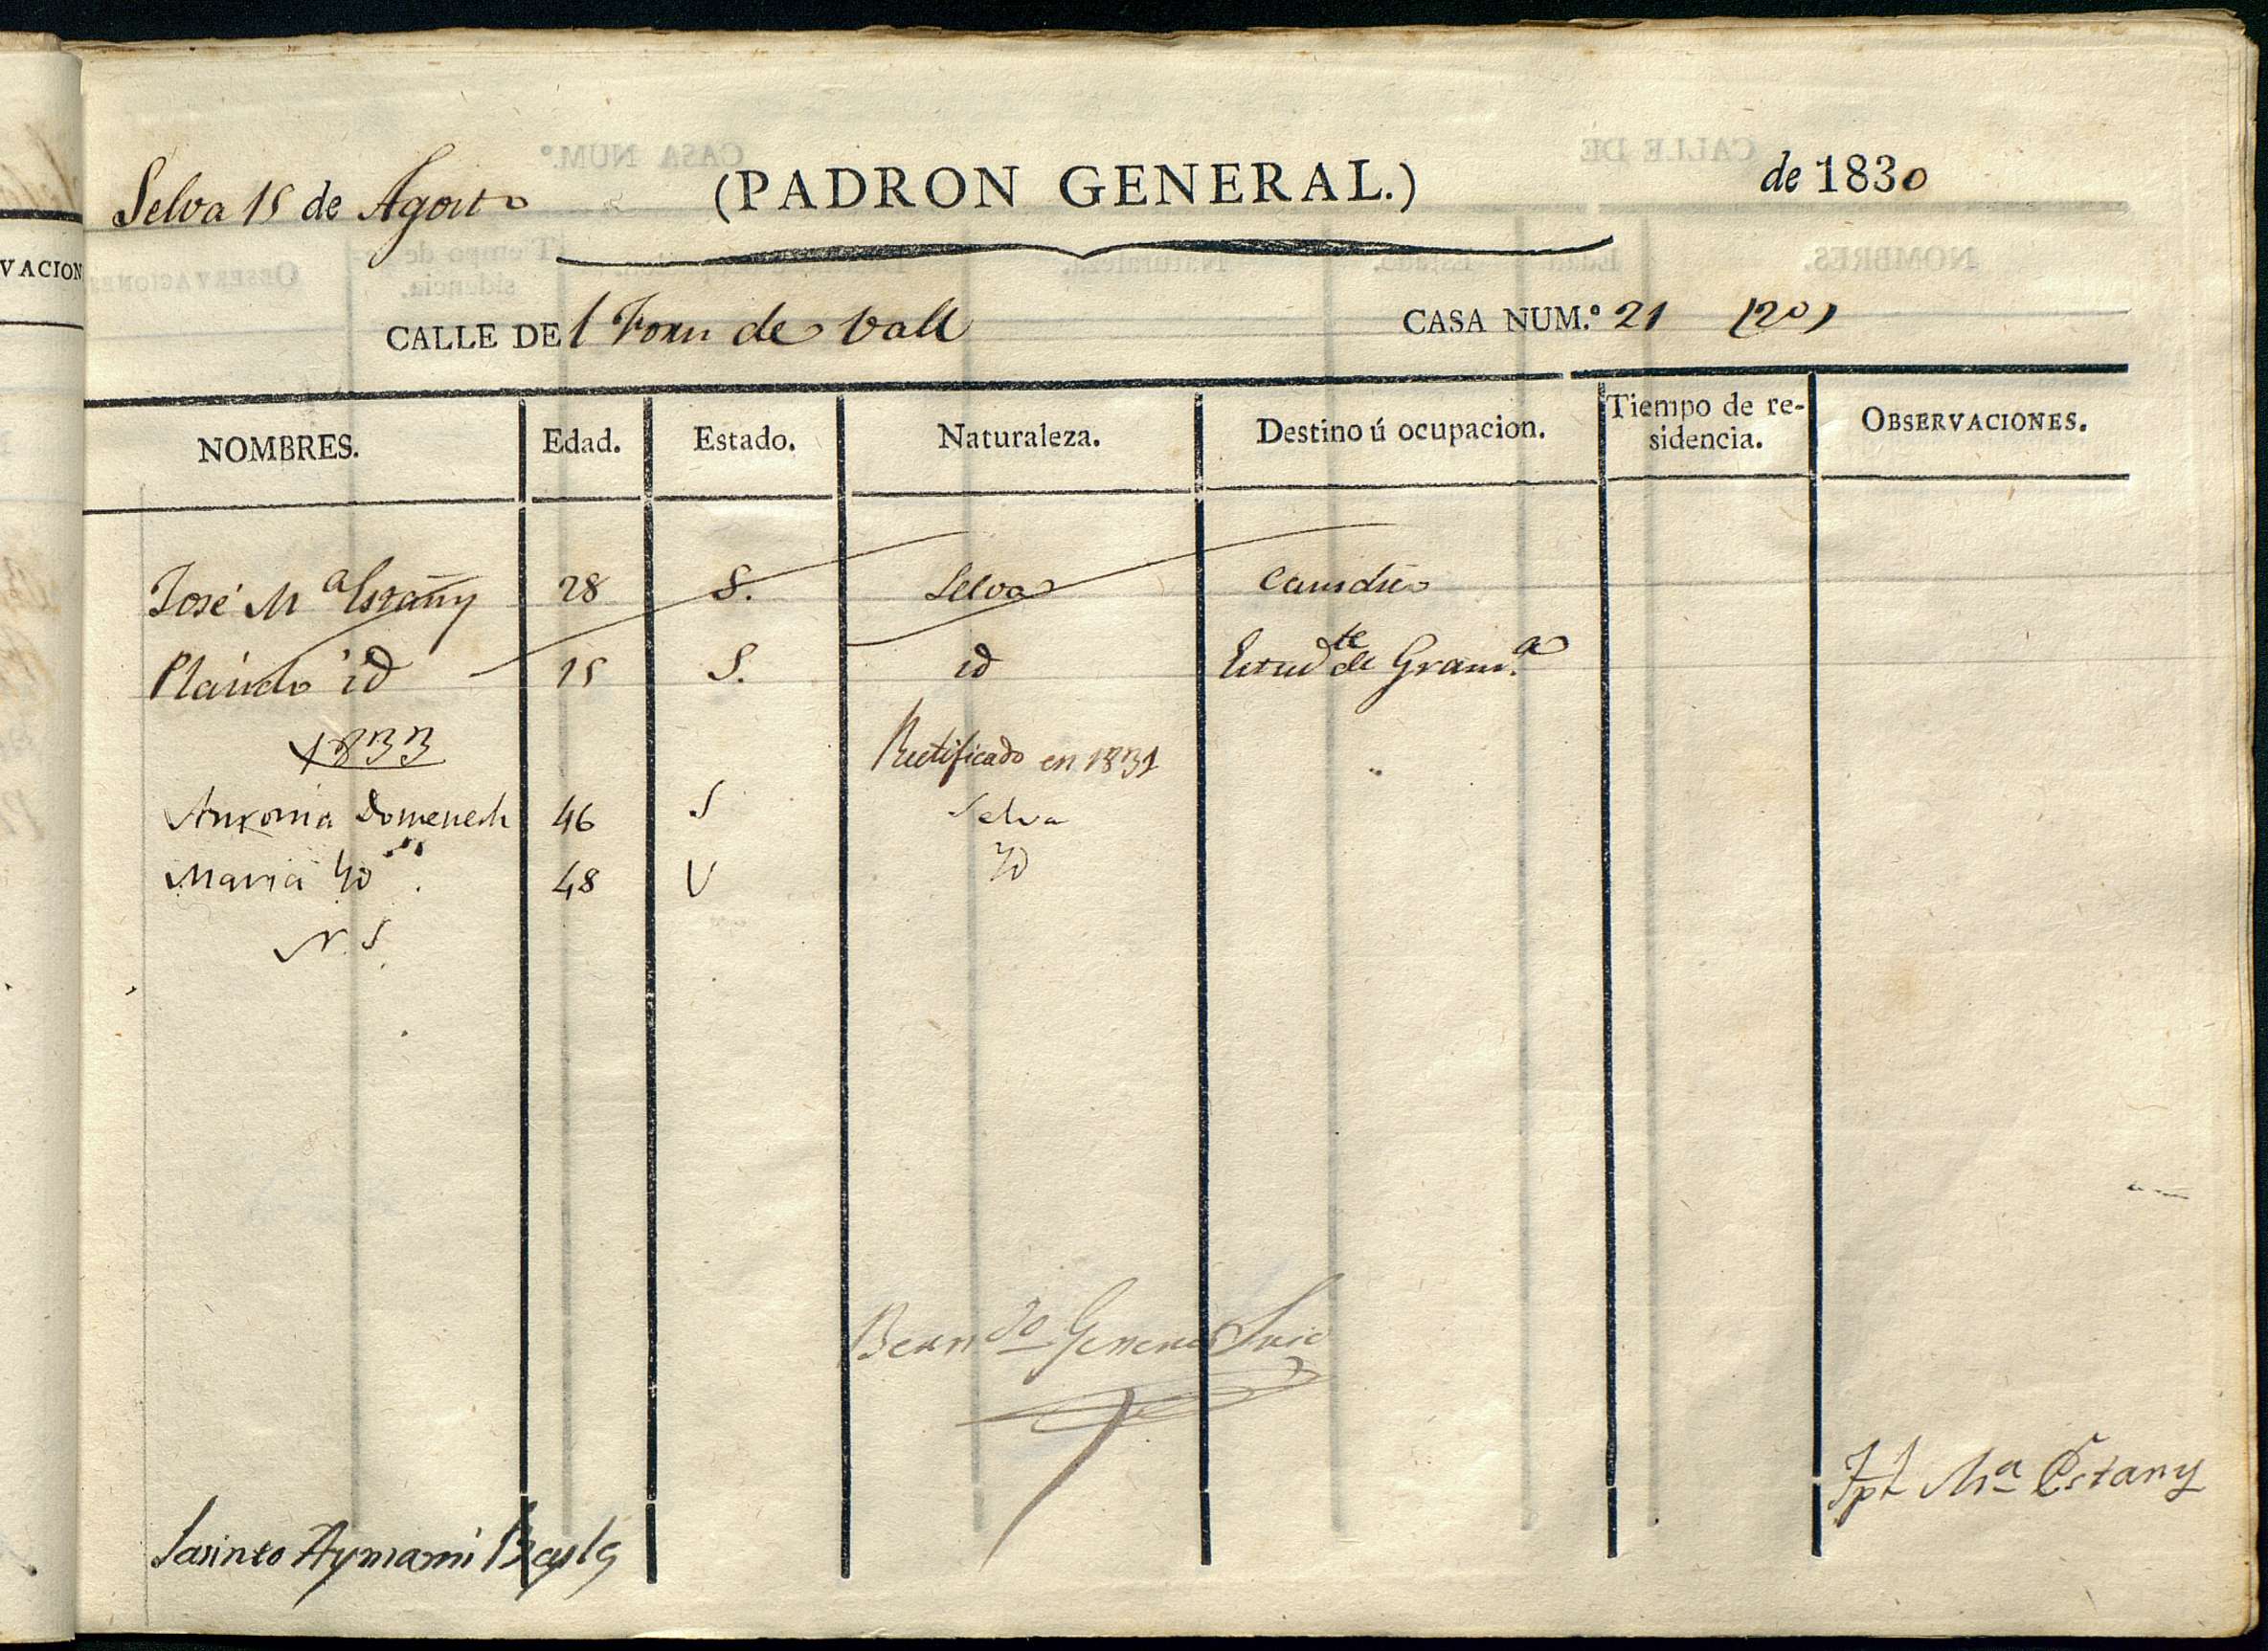 Selva 15 de Agosto (PADRON GENERAL.) de 1830
CALLE DEl Forn de Vall CASA NUM.º 21 (20)
NOMBRES. Edad. Estado. Naturaleza. Destino ú ocupacion. Tiempo de residencia. OBSERVACIONES.
José Mª Estañy 28 S. Selva
Placido id 15 S. id Estudte de Gram.a
1833 Rectificado en 1831
Antonia Domenech 46 S Selva
Maria Yd 48 V Yd
N. S.
Berndo
Jph Mª Estany
Jasinto Aymami Bayle
VACION